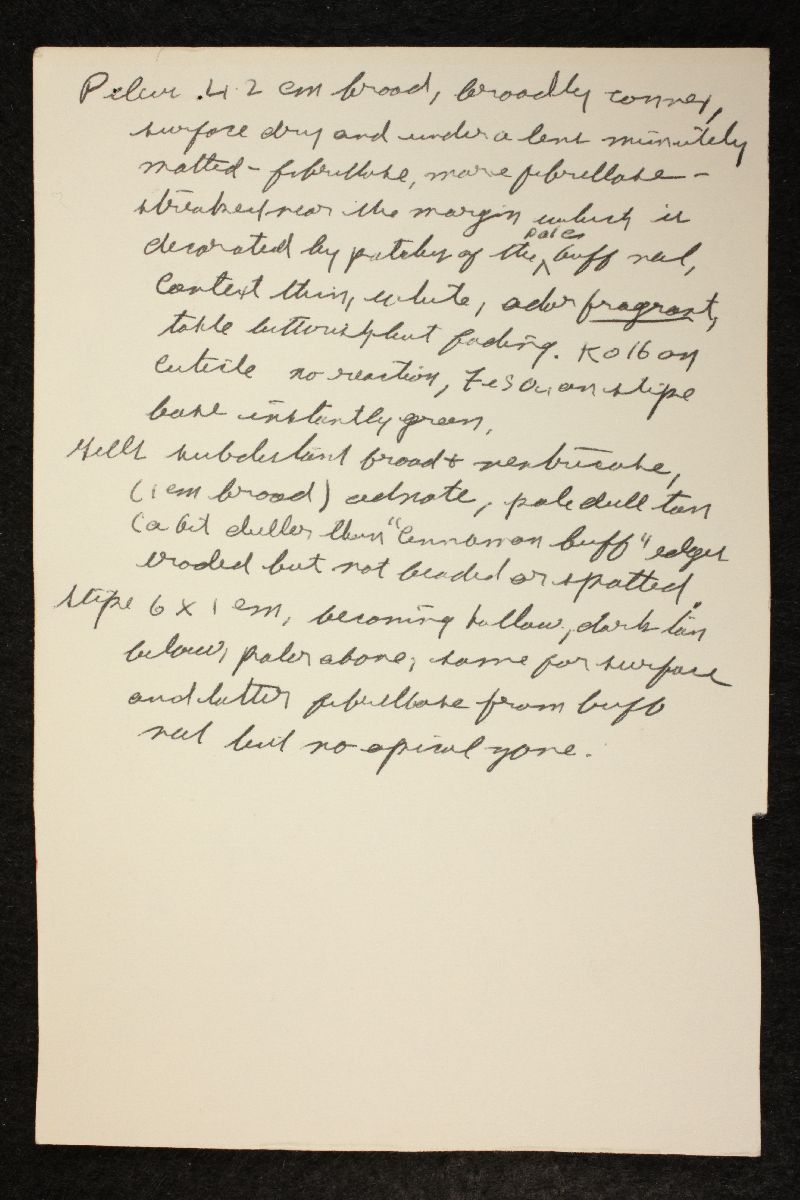 Pileus 4.2 cm broad, broadly convex,
surface dry and under a lens minutely
matted-fibrillose, more fibrillose-
streaked near the margin which is
decorated by patches of the pale buff veil,
Context thin, white, odor fragrant,
taste bitterish but fading. KOH on
cuticle no reaction, FeSO4 on stipe
base instantly green.
Gills subdistant broad + ventricose,
(1 cm broad) adnate, pale dull tan
(a bit duller than "Cinnamon buff" edges
eroded but not beaded or spotted.
Stipe 6 x 1 cm, becoming hollow, dark tan
below, paler above, same for surface
and latter fibrillose from buff
veil but no apical zone.